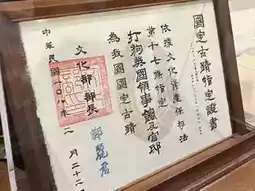 國定古蹟指定證書
依據文化資產保存法
第十七條指定
打狗英國領事館及官邸
為我國國定古蹟
文化部部長
鄭麗君
中華民國一〇八年二月二十二日